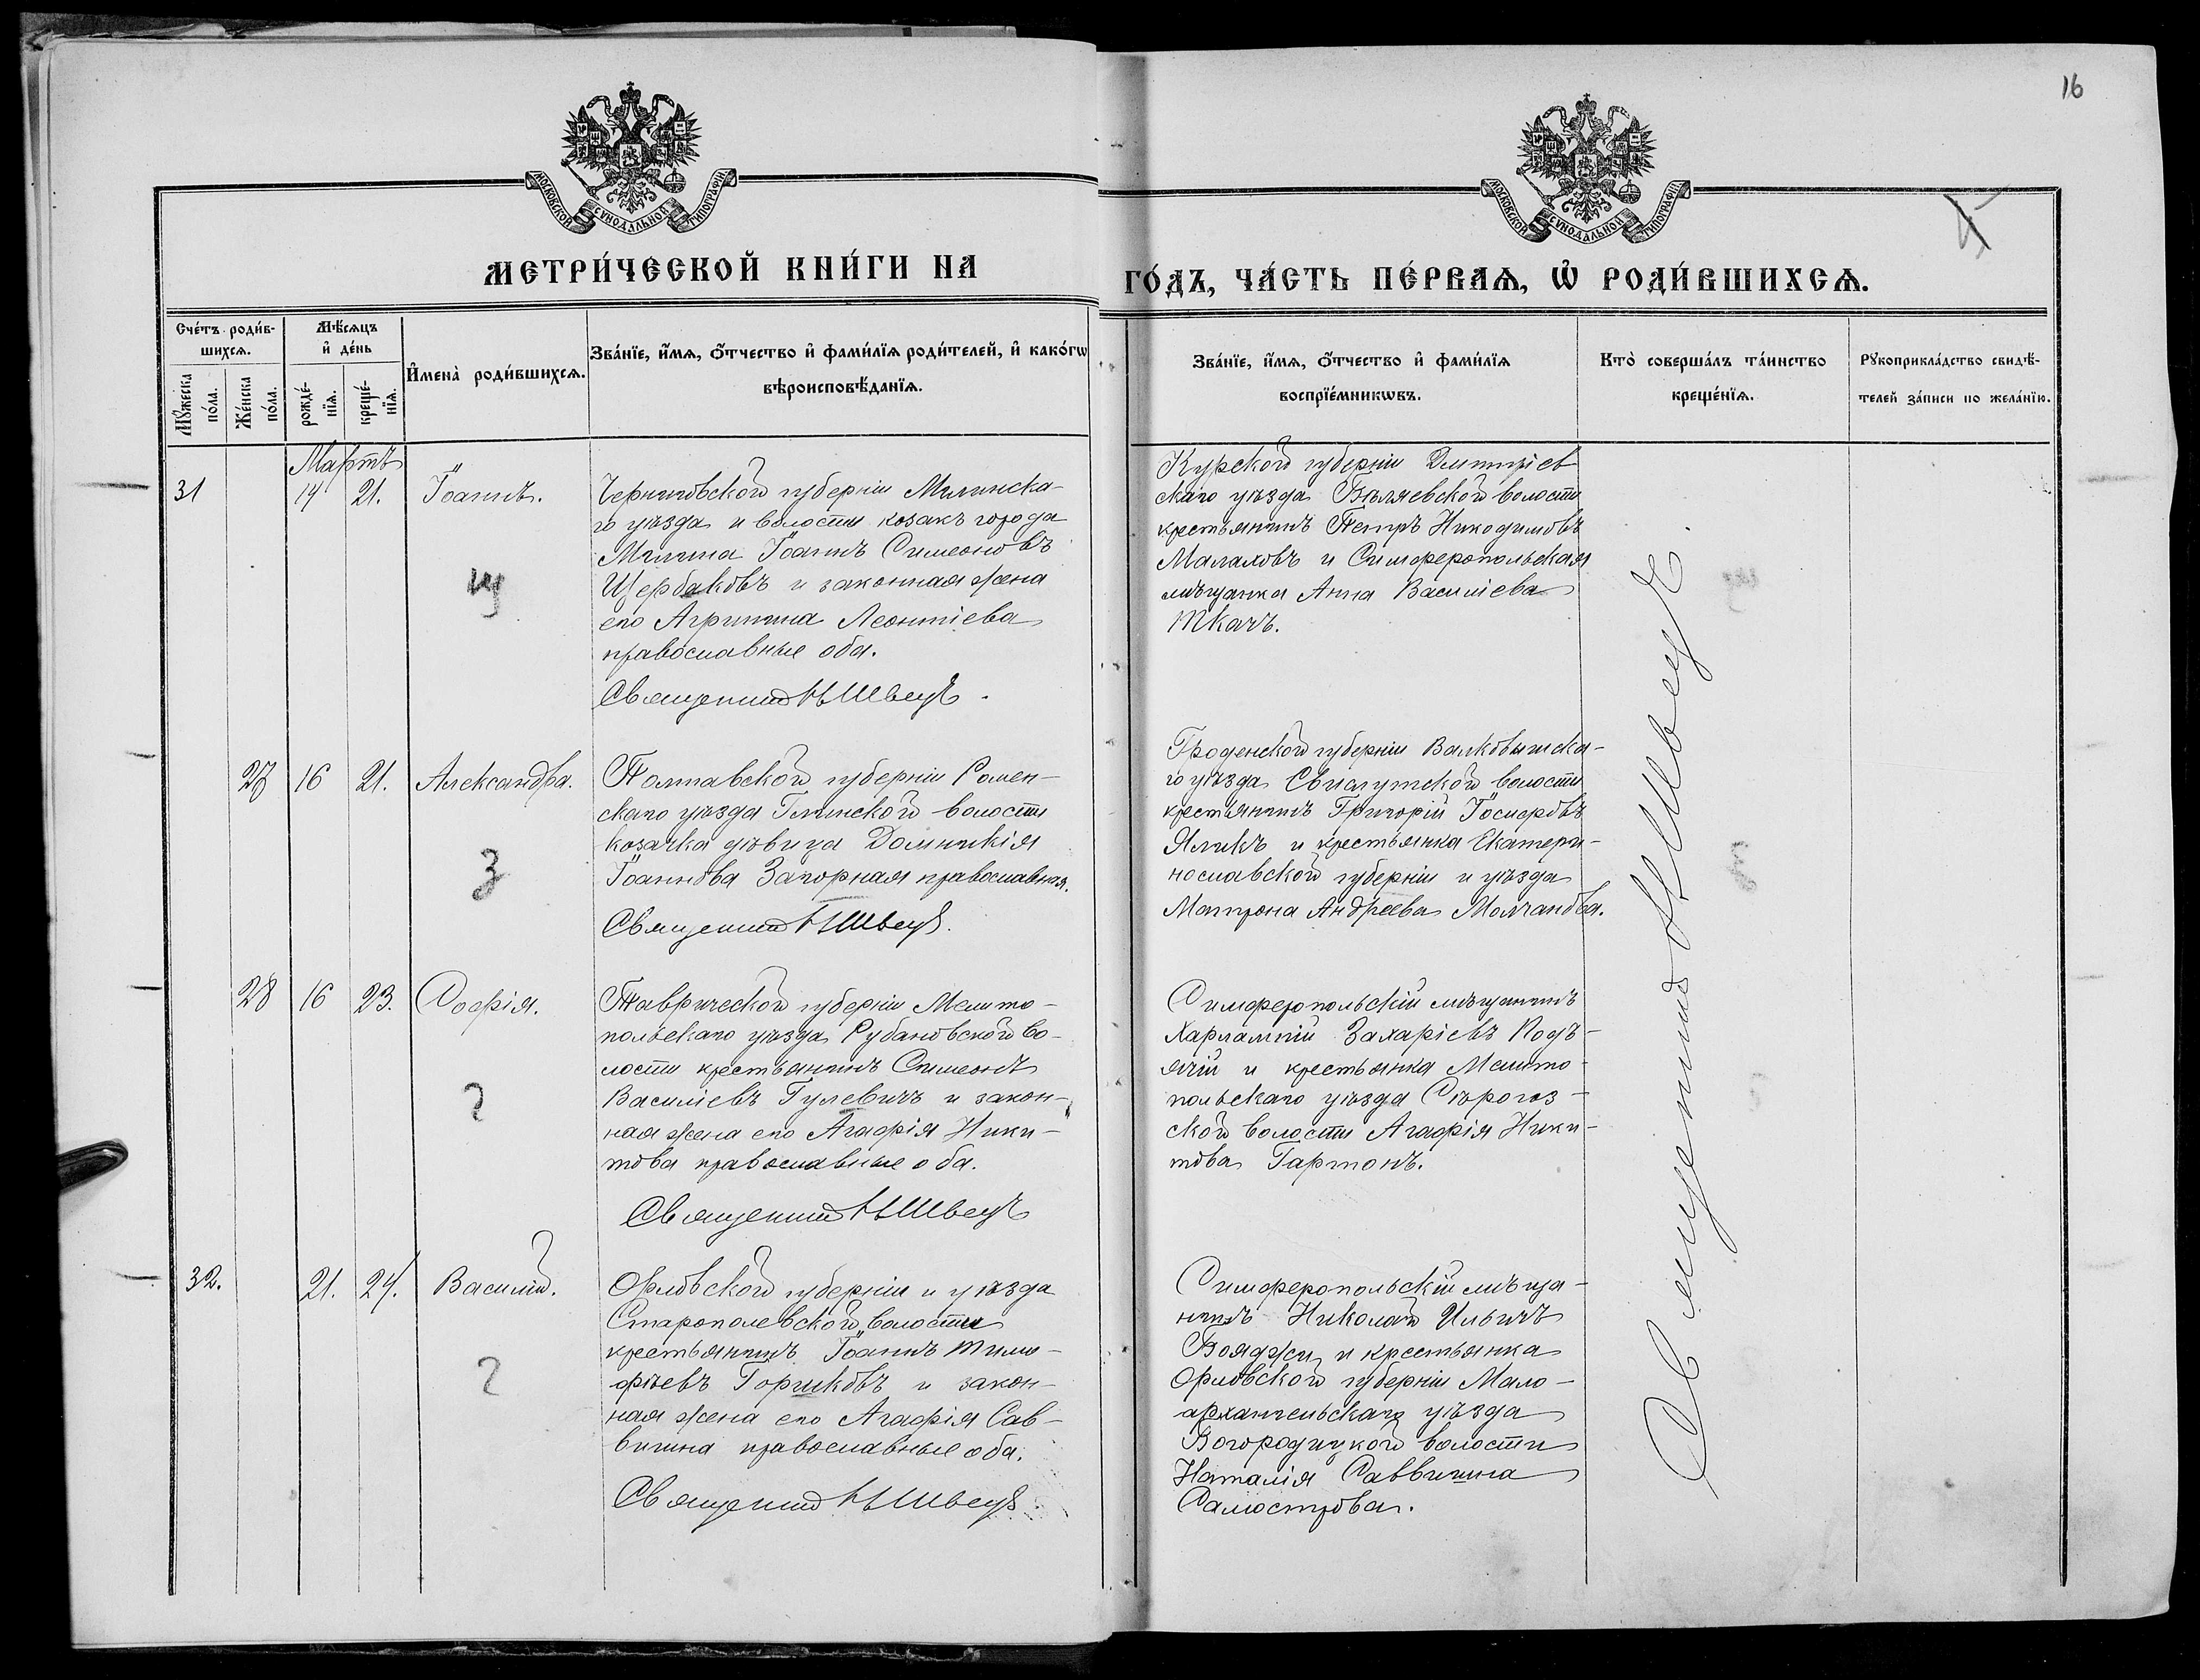 16
МОСКОВСКОЙ СѴНОДАЛЬНОЙ ТИПОГРАФІИ
МОСКОВСКОЙ СѴНОДАЛЬНОЙ ТИПОГРАФІИ
МЕТРИ́ЧЕСКОЙ КНИ́ГИ НА
ГО́ДЪ, ЧА́СТЬ ПЕ́РВАѦ, Ѡ҆ РОДИ́ВШИХСѦ.
Сче́тъ роди́в-
шихсѧ.
Мꙋ́жеска
по́ла.
Же́нска
по́ла.
Мѣ́сѧцъ
и҆ де́нь
рожде́-
нїѧ.
креще́-
нїѧ.
И҆мена̀ роди́вшихсѧ.
Зва́нїе, и҆́мѧ, ѻ҆́тчество и҆ фами́лїѧ роди́телей, и҆ како́гѡ
вѣроисповѣ́данїѧ.
Зва́нїе, и҆́мѧ, ѻ҆́тчество и҆ фами́лїѧ
воспрїе́мникѡвъ.
Кто̀ соверша́лъ та́инство
креще́нїѧ.
Рꙋкоприкла́дство свидѣ́-
телей за́писи по жела́нїю.
Мартъ
31
14
21.
Іоаннъ.
Черниговской губерніи Мглинска-
го уѣзда и волости козакъ города
Мглина Іоаннъ Симеоновъ
Щербаковъ и законная жена
его Агрипина Леонтіева
православные оба.
Священникъ Н Швецъ.
Курской губерніи Дмитріев
скаго уѣзда Бѣляевской волости
крестьянинъ Петръ Никодимовъ
Малаховъ и Симферопольская
мѣщанка Анна Василіева
Ткачъ.
щ
27
16
21.
Александра.
Полтавской губерніи Ромен-
скаго уѣзда Глинской волости
козачка дѣвица Домникія
Іоаннова Загорная православная.
Священникъ Н Швецъ.
Гроденской губерніи Валковыска-
го уѣзда Свислутской волости
крестьянинъ Григорій Іосифовъ
Ялукъ и крестьянка Екатери-
нославской губерніи и уѣзда
Матрона Андреева Молчанова.
З
28
16
23.
Софія.
Таврической губерніи Мелито-
польскаго уѣзда Рубановской во-
лости крестьянинъ Симеонъ
Василіевъ Гулевичъ и закон-
ная жена его Агафія Ники-
това православные оба.
Священникъ Н Швецъ
Симферопольскій мѣщанинъ
Харлампій Захаріевъ Подъ-
ячій и крестьянка Мелито-
польскаго уѣзда Сѣрогоз-
ской волости Агафія Ники-
това Гартонъ.
32.
21.
24.
Василій.
Орловской губерніи и уѣзда
Старополевской волости
крестьянинъ Іоаннъ Тимо-
фѣевъ Горшковъ и закон-
ная жена его Агафія Сав-
вишна православные оба.
Священникъ Н Швецъ.
Симферопольскій мѣща-
нинъ Николай Ильичъ
Бояджи и крестьянка
Орловской губерніи Мало-
архангельскаго уѣзда
Богородицкой волости
Наталія Саввишна
Самострова.
Священникъ Н Швецъ.